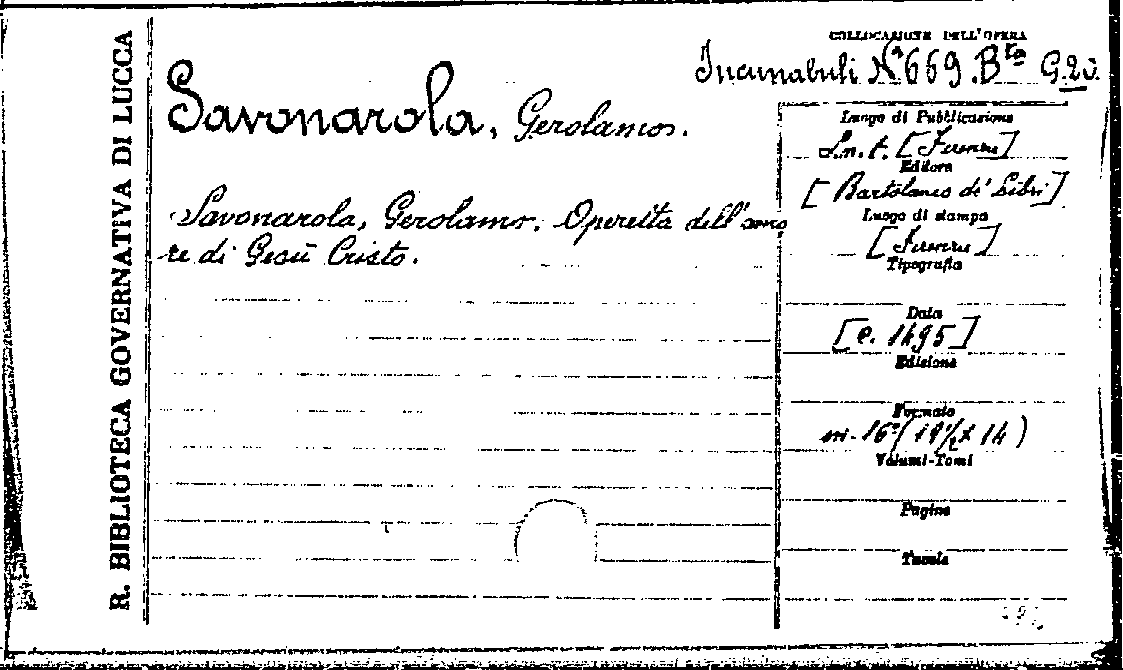 R. BIBLIOTECA GOVERNATIVA DI LUCCA
COLLOCAZIONE DELL'OPERA
Incunabuli N° 669. Bta G.2
Savonarola, Gerolamo.
Savonarola, Gerolamo. Operetta dell'amo
re di Gesù Cristo.
Luogo di Pubblicazione
S.n.t. [Firenze]
Editore
[Bartolomeo de' Libri]
Luogo di stampa
[Firenze]
Tipografia
Data
[c. 1495]
Edizione
Formato
in-16° (19½ x 14)
Volumi-Tomi
Pagine
Tavole